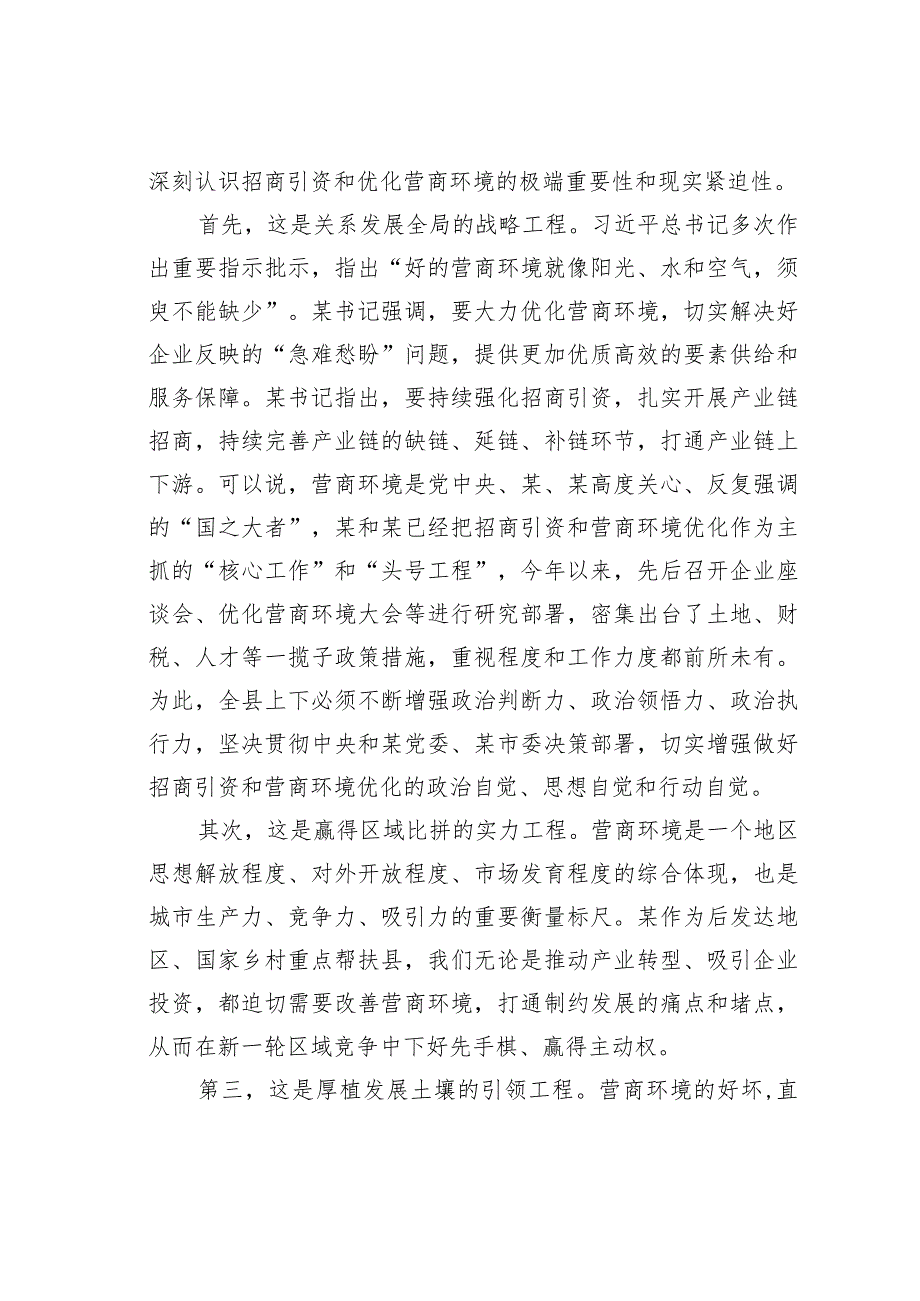 深刻认识招商引资和优化营商环境的极端重要性和现实紧迫性。
首先，这是关系发展全局的战略工程。习近平总书记多次作
出重要指示批示，指出“好的营商环境就像阳光、水和空气，须
臾不能缺少”。某书记强调，要大力优化营商环境，切实解决好
企业反映的“急难愁盼”问题，提供更加优质高效的要素供给和
服务保障。某书记指出，要持续强化招商引资，扎实开展产业链
招商，持续完善产业链的缺链、延链、补链环节，打通产业链上
下游。可以说，营商环境是党中央、某、某高度关心、反复强调
的“国之大者”，某和某已经把招商引资和营商环境优化作为主
抓的“核心工作”和“头号工程”，今年以来，先后召开企业座
谈会、优化营商环境大会等进行研究部署，密集出台了土地、财
税、人才等一揽子政策措施，重视程度和工作力度都前所未有。
为此，全县上下必须不断增强政治判断力、政治领悟力、政治执
行力，坚决贯彻中央和某党委、某市委决策部署，切实增强做好
招商引资和营商环境优化的政治自觉、思想自觉和行动自觉。
其次，这是赢得区域比拼的实力工程。营商环境是一个地区
思想解放程度、对外开放程度、市场发育程度的综合体现，也是
城市生产力、竞争力、吸引力的重要衡量标尺。某作为后发达地
区、国家乡村重点帮扶县，我们无论是推动产业转型、吸引企业
投资，都迫切需要改善营商环境，打通制约发展的痛点和堵点，
从而在新一轮区域竞争中下好先手棋、赢得主动权。
第三，这是厚植发展土壤的引领工程。营商环境的好坏,直